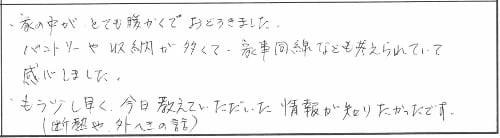 ・家の中が とても暖かくて おどろきました。
パントリーや 収納が 多くて、家事同線なども考えられていて
感心しました。
・もう少し早く、今日教えていただいた 情報が知りたかったです。
(断熱や、外へきの話)